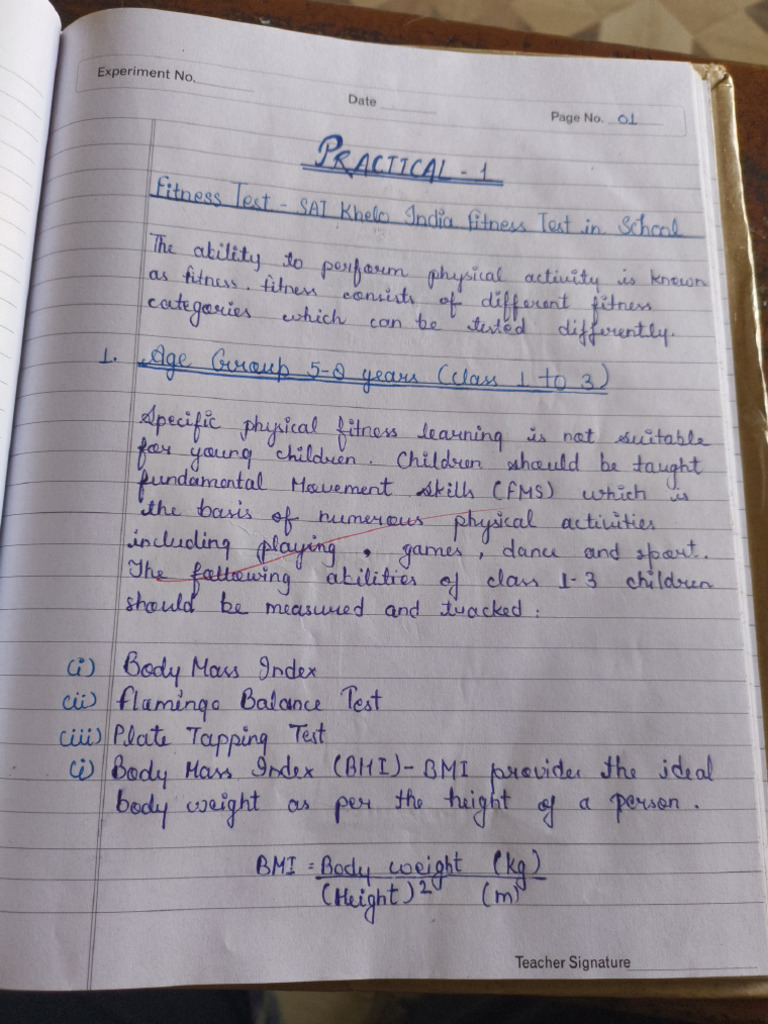 Experiment No.
Date
Page No. 01
PRACTICAL - 1
Fitness Test - SAI Khelo India Fitness Test in School
The ability to perform physical activity is known
as fitness. fitness consists of different fitness
categories which can be tested differently.
1. Age Group 5-8 years (Class 1 to 3)
Specific physical fitness learning is not suitable
for young children. Children should be taught
fundamental Movement Skills (FMS) which is
the basis of numerous physical activities
including playing, games, dance and sport.
The following abilities of class 1-3 children
should be measured and tracked:
(i) Body Mass Index
(ii) flamingo Balance Test
(iii) Plate Tapping Test
(i) Body Mass Index (BMI) - BMI provides the ideal
body weight as per the height of a person.
BMI = Body weight (kg)
(Height)² (m)
Teacher Signature